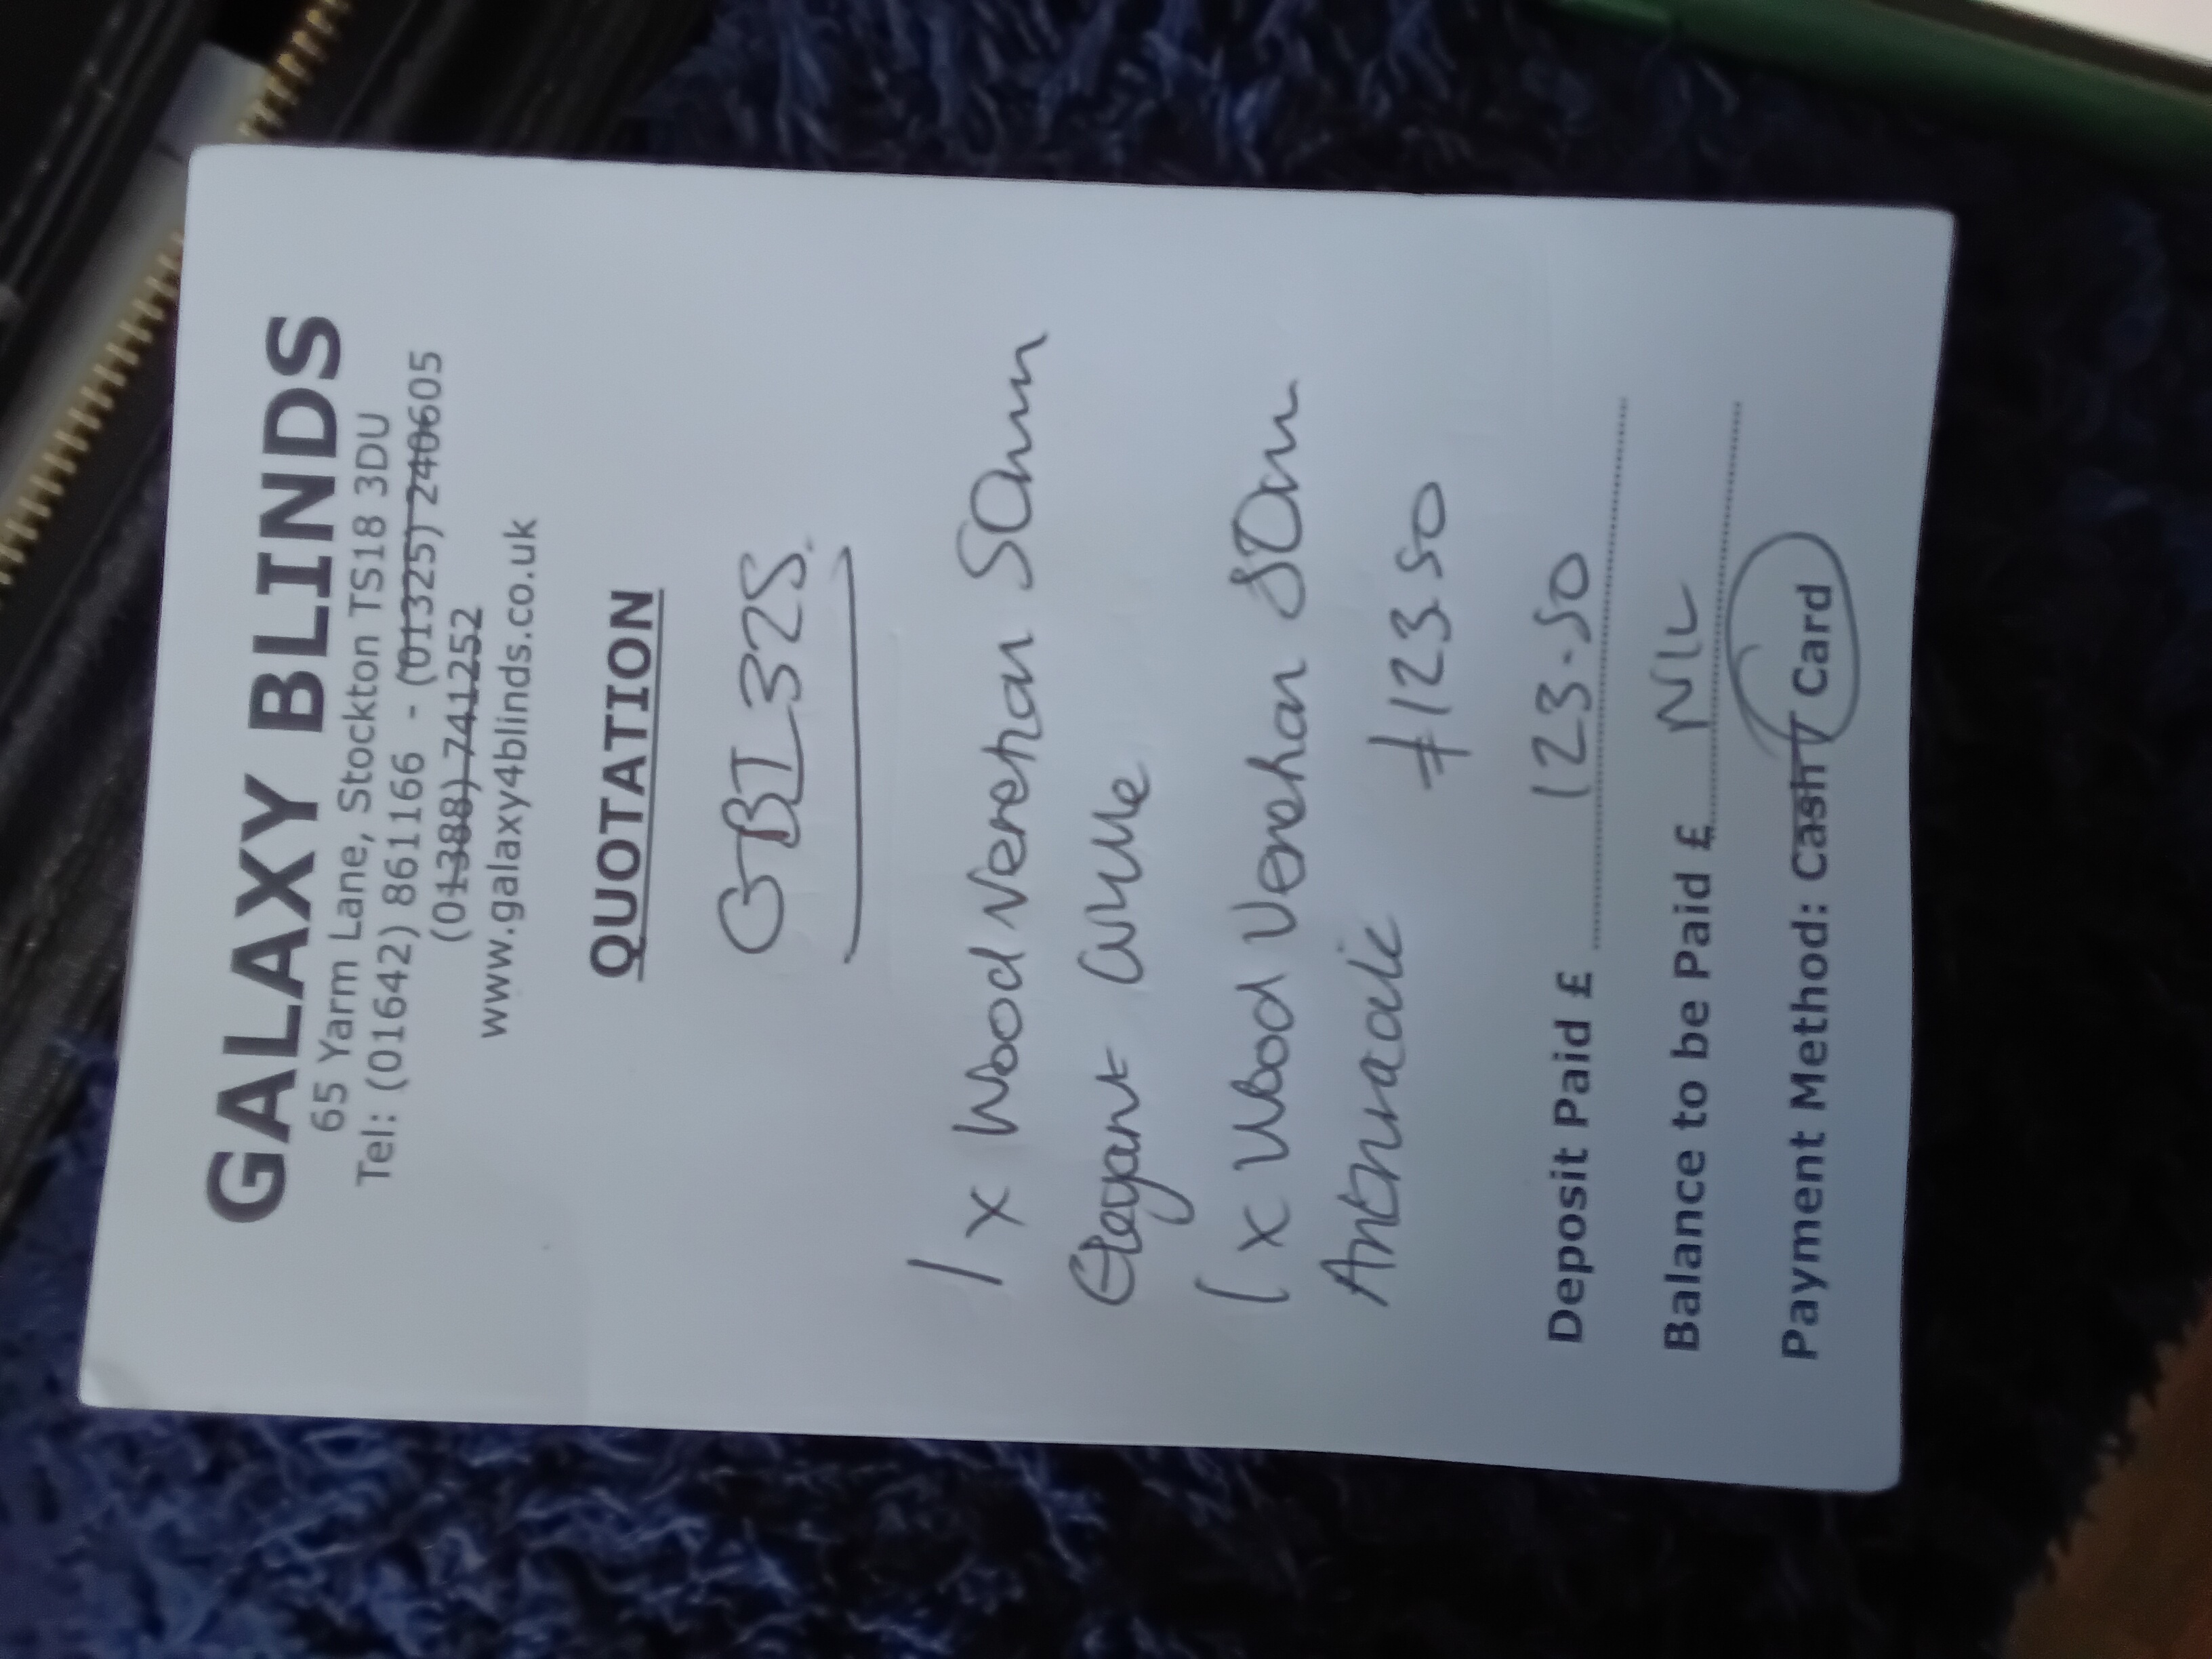 GALAXY BLINDS
65 Yarm Lane, Stockton TS18 3DU
Tel: (01642) 861166 - (01325) 240605
(01388) 741252
www.galaxy4blinds.co.uk
QUOTATION
GBI 325.
1 x Wood Venetian 50mm
Elegant White
1 x Wood Venetian 50mm
Anthracite £123.50
Deposit Paid £ 123-50
Balance to be Paid £ NIL
Payment Method: Cash / Card